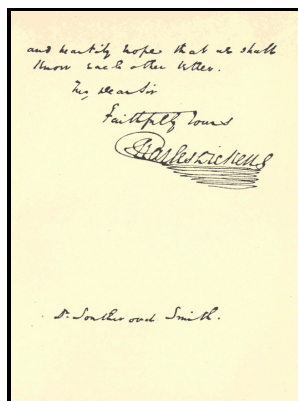 and heartily hope that we shall
know each other better.
My dear Sir
Faithfully Yours
Charles Dickens
Dr. Southwood Smith.